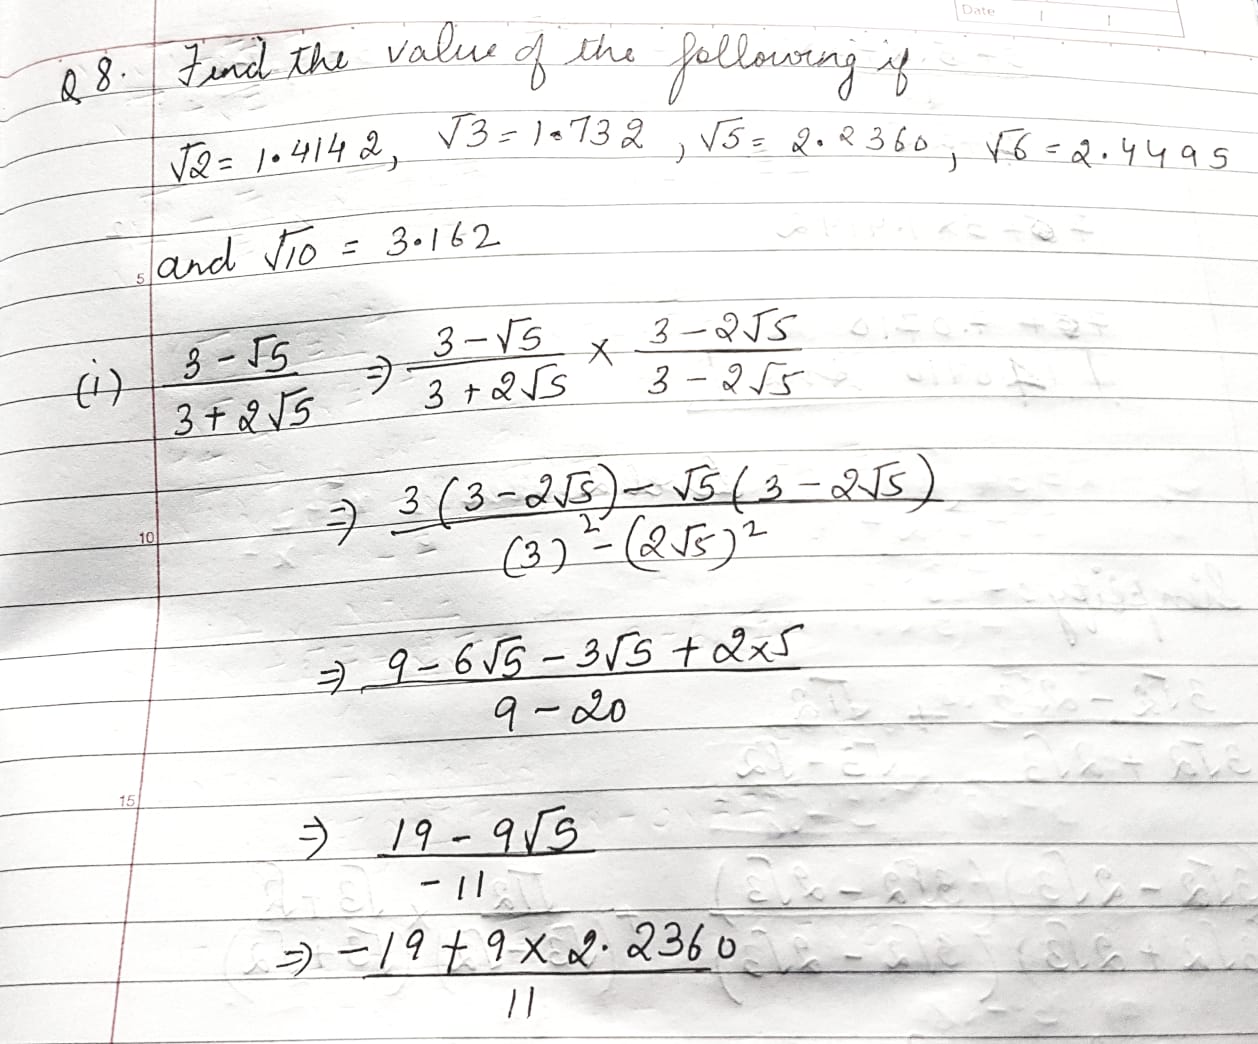 Date
Q8. Find the value of the following if
√2 = 1.4142, √3 = 1.732, √5 = 2.2360, √6 = 2.4495
and √10 = 3.162
5
(i) (3 - √5)/(3 + 2√5) ⇒ (3 - √5)/(3 + 2√5) × (3 - 2√5)/(3 - 2√5)
⇒ (3(3 - 2√5) - √5(3 - 2√5))/((3)² - (2√5)²)
10
⇒ (9 - 6√5 - 3√5 + 2×5)/(9 - 20)
15
⇒ (19 - 9√5)/(-11)
⇒ (-19 + 9 × 2.2360)/11